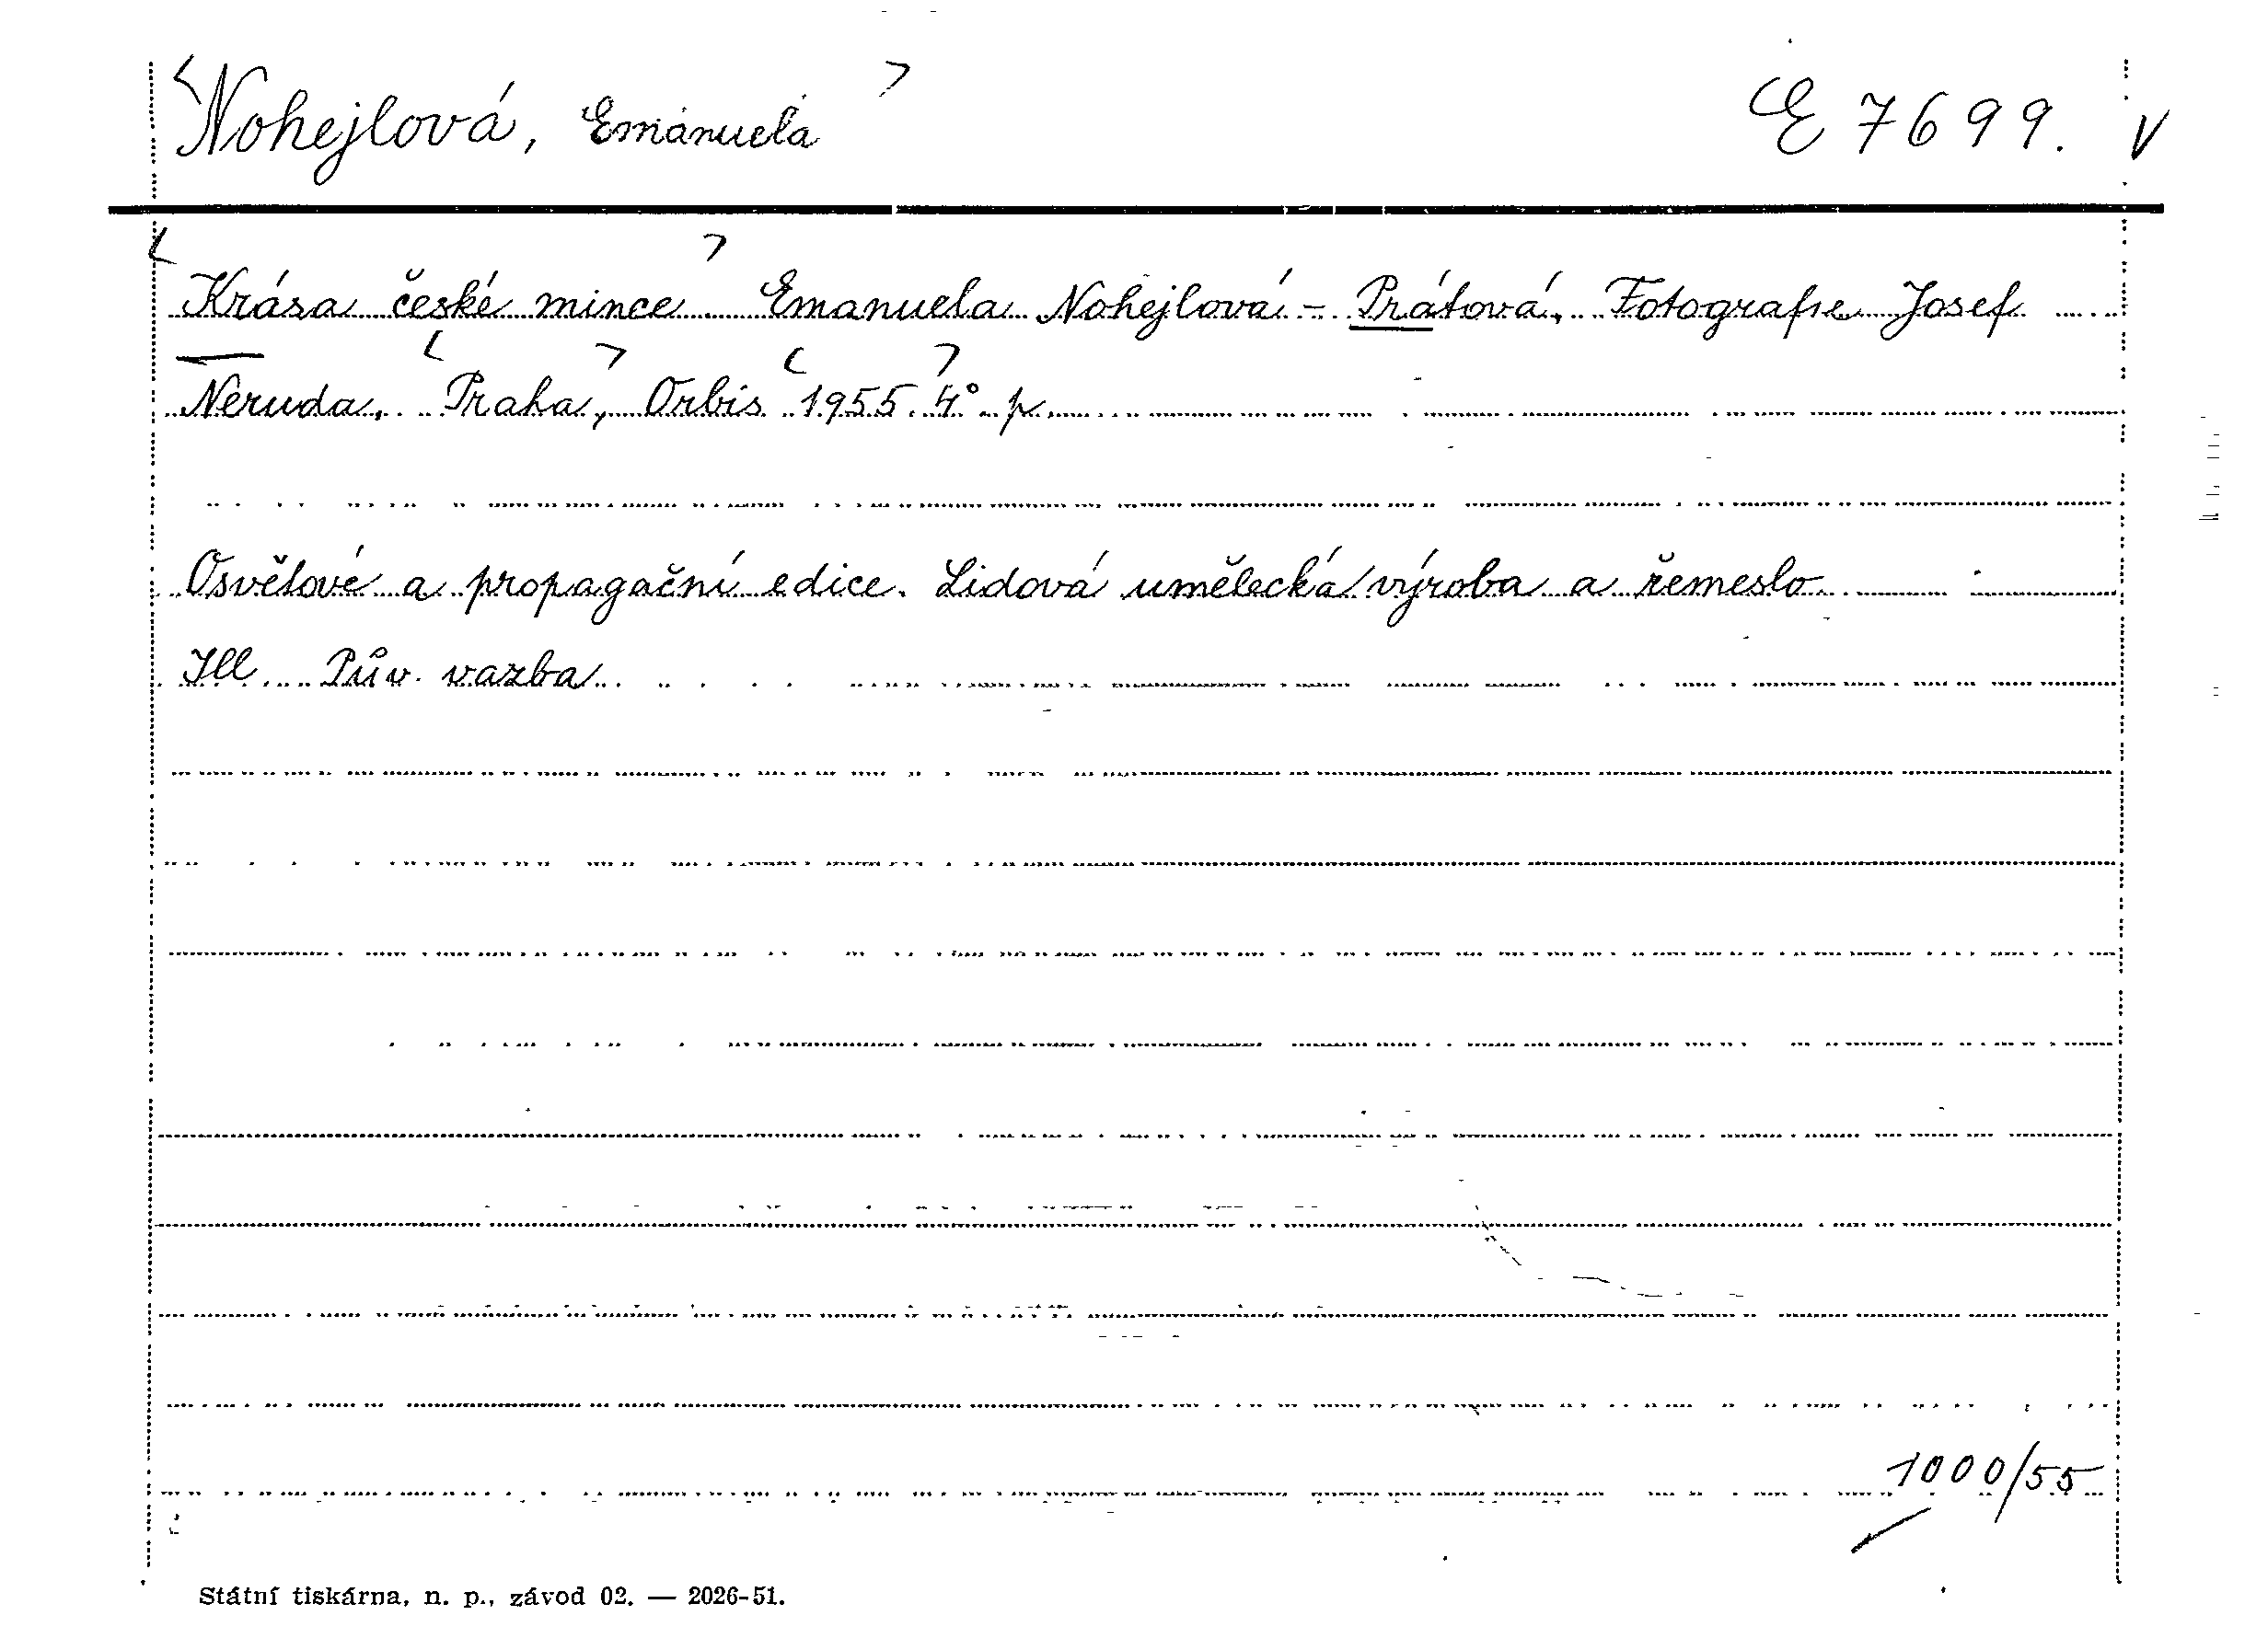 <Nohejlová, Emanuela> E 7699. V
<Krása české mince>. Emanuela Nohejlová - Prátová, Fotografie Josef
Neruda, <Praha>, Orbis <1955> 4° p.
Osvětové a propagační edice. Lidová umělecká výroba a řemeslo
Ill. Pův. vazba
1000/55
Státní tiskárna, n. p., závod 02. — 2026-51.